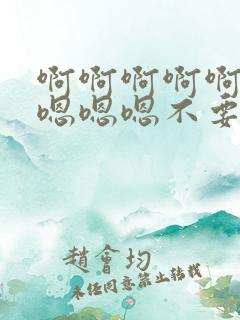 啊啊啊啊啊
嗯嗯嗯不要
趙會均
未经同意禁止转载